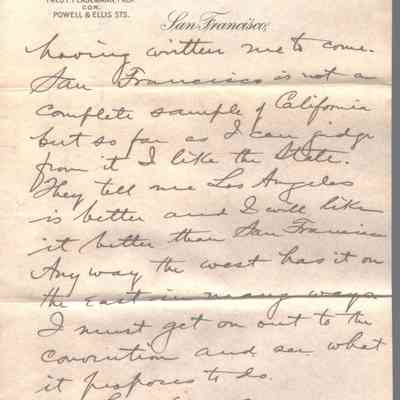 COR.
POWELL & ELLIS STS.
San Francisco,
having written me to come.
San Francisco is not a
complete sample of California
but so far as I can judge
from it I like the State.
They tell me Los Angeles
is better and I will like
it better than San Francisco
Any way the west has it on
the East in many ways.
I must get on out to the
convention and see what
it proposes to do.